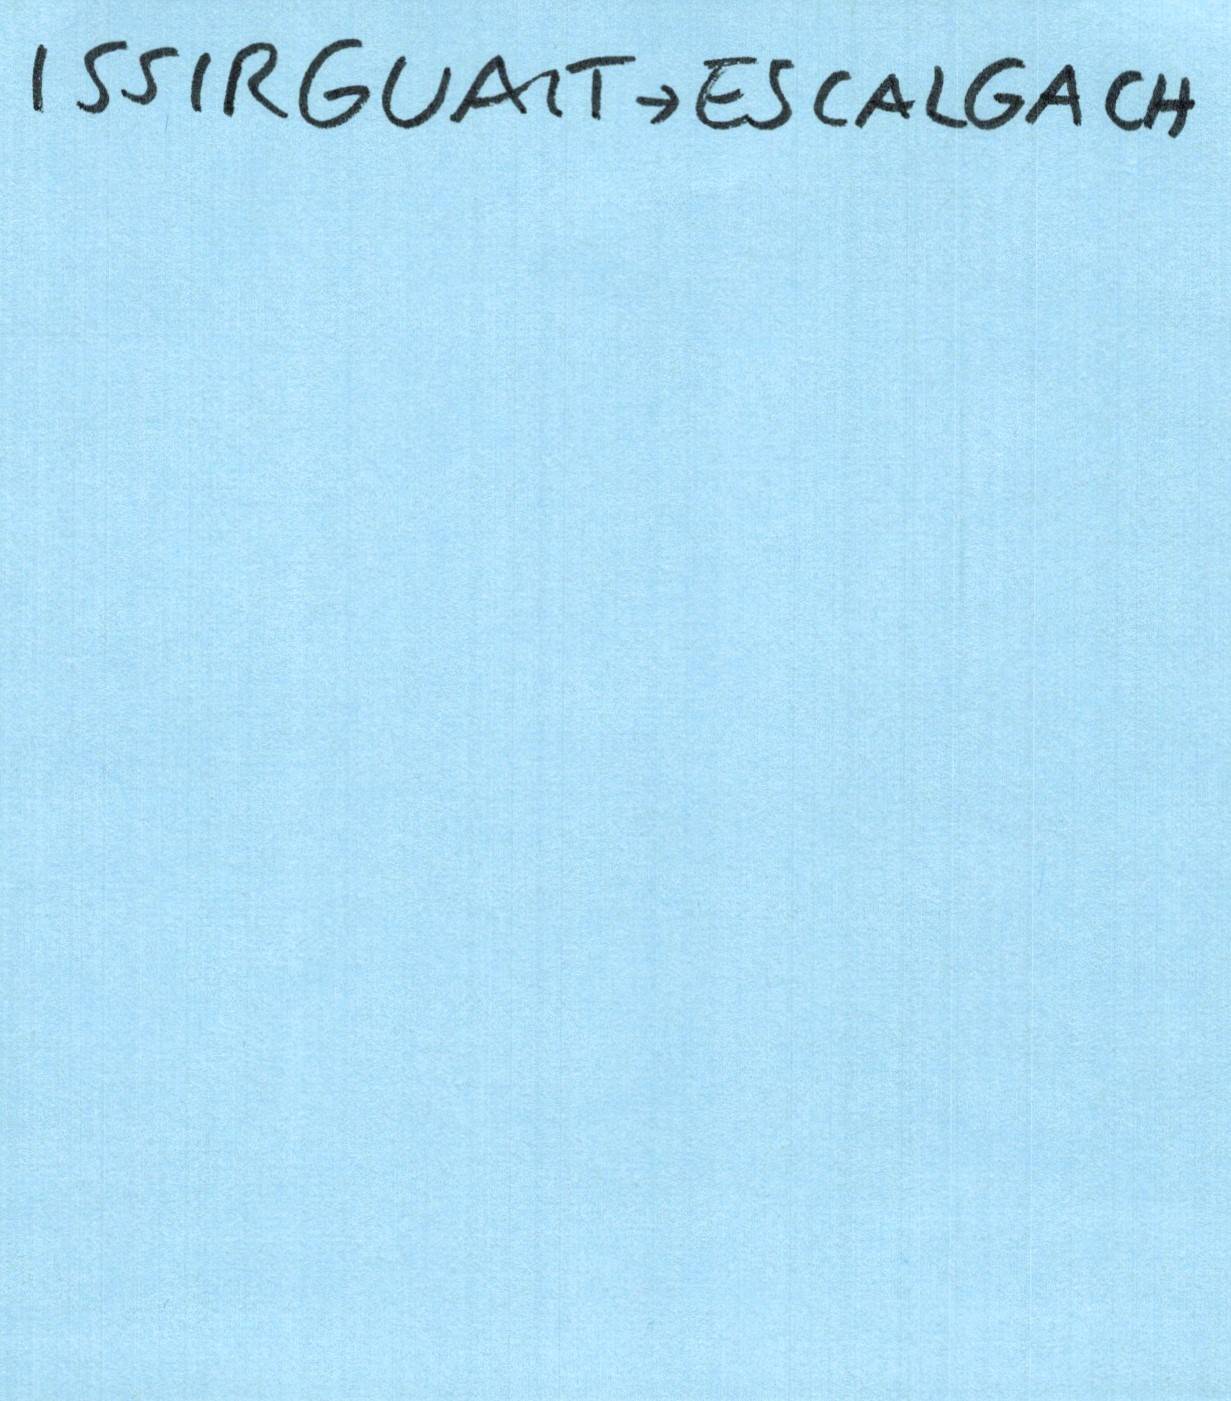 ISSIRGUAIT → ESCALGACH